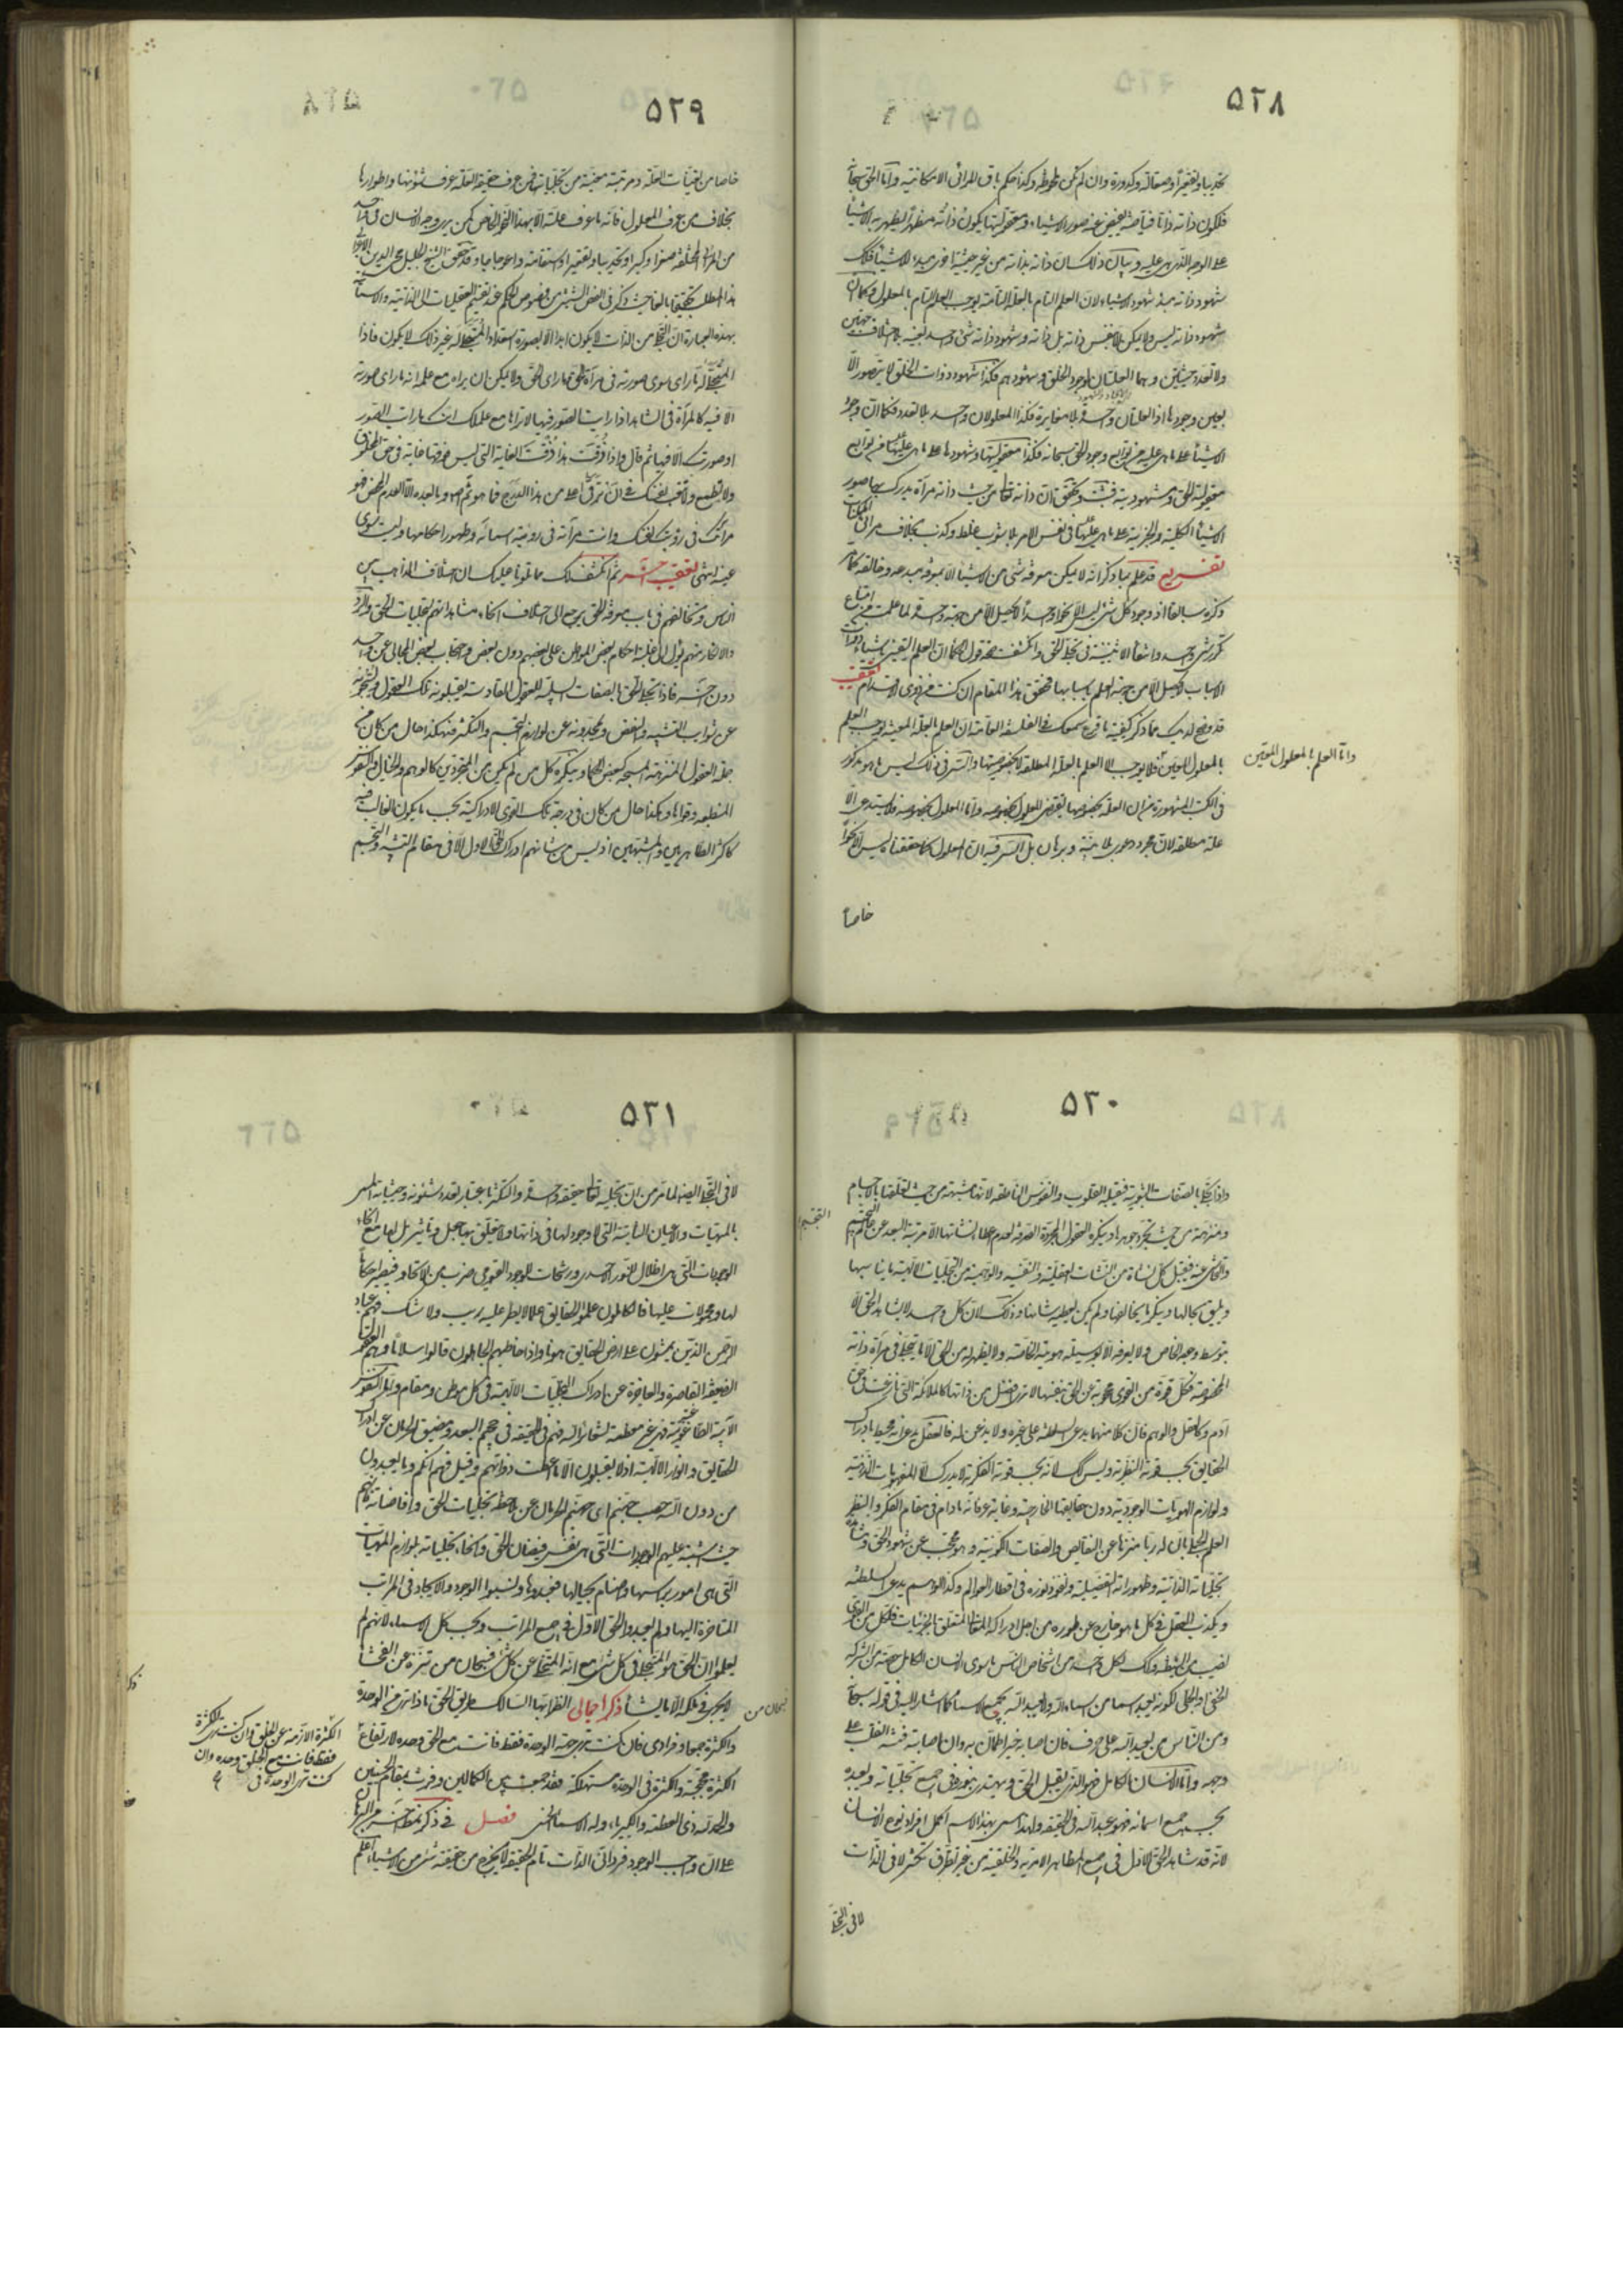 ٥٢٨
تحديبا وتقعيرا وصقالة وكدورة وان لم تكن ملحوظة وكذا حكم باقي المرائي الامكانية واما الحق سبحانه
فلكون ذاته ذاتا فياضة يفيض عنه صور الاشياء ومعقوليتها يكون ذاته مظهرا يظهر به الاشياء
على الوجه الذي هي عليه وبيان ذلك ان ذاته بذاته من غير حيثية اخرى مبدء الاشياء فكذلك
شهود ذاته مبدء شهود الاشياء لان العلم التام بالعلة التامة يوجب العلم التام بالمعلول وكما ان
شهود ذاته ليس ولا يمكن الا بنفس ذاته بل ذاته وشهود ذاته شئ واحد بعينه بلا اختلاف جهتين
ولا تعدد حيثيتين وهما العلتان لوجود الخلق وشهودهم فكذا شهود ذوات الخلق لا يتصور الا
بعين وجودها اذ العلتان واحدة بلا مغايرة فكذا المعلولان واحد بلا تعدد فكما ان وجود
الاشياء على ما هي عليه من توابع وجود الحق سبحانه فكذا معقوليتها وشهودها على ما هي عليها من توابع
معقولية الحق ومشهوديته فثبت وتحقق ان ذاته تعالى من حيث ذاته مرآة يدرك بها صور
الاشياء الكلية والجزئية على ما هي عليها في نفس الامر بلا شوب غلط وكذب بخلاف مرائي الممكنات
تفريع قد علم مما ذكر انه لا يمكن معرفة شئ من الاشياء الا بمعرفة مبدعه وخالقه كما مر
ذكره سابقا اذ وجود كل شئ ليس الا نحوا واحدا لا يحصل الا من جهة واحدة لما علمت من امتناع
تكرر شئ واحد وانتفاء الاثنينية في تجلي الحق وانكشف صحة قول الحكماء ان العلم اليقيني باشياء ذوات
الاسباب لا يحصل الا من جهة العلم باسبابها فتحقق هذا المقام ان كنت من ذوي الاقدام تعقيب
قد وضح لديك مما ذكر كيفية ما قرع سمعك في الفلسفة العامة ان العلم بالعلة المعينة يوجب العلم
بالمعلول المعين فلا يوجب الا العلم بالعلة المطلقة لا بخصوصيتها والسر في ذلك ليس ما هو مذكور
واما العلم بالمعلول المعين
في الكتب المشهورة من ان العلة بخصوصها يقتضي المعلول بخصوصه واما المعلول بخصوصه فلا يستدعي الا
علة مطلقة لان مجرد دعوى بلا بينة وبرهان بل السر فيه ان المعلول كما حققناه ليس الا نحوا
خاصا
٥٢٩
خاصا من تعينات العلة ومرتبة معينة من تجلياته فمن عرف حقيقة العلة عرف شؤنها واطوارها
بخلاف من عرف المعلول فانه ما عرف علته الا بهذا النحو الخاص كمن يرى وجه الانسان في واحدة
من المرائي المختلفة صغرا وكبرا وتحديبا وتقعيرا واستقامة واعوجاجا وقد حقق الشيخ الجليل محي الدين الاعرابي
هذا المطلب تحقيقا بالغا حيث ذكر في الفص الشيثي من فصوص الحكم عند تقسيم العطيات الى الذاتية والاسمائية
بهذه العبارة ان التجلي من الذات لا يكون ابدا الا بصورة استعداد المتجلى له غير ذلك لا يكون فاذا
المتجلى له ما راى سوى صورته في مرآة الحق وما راى الحق ولا يمكن ان يراه مع علمه انه ما راى صورته
الا فيه كالمرآة في الشاهد اذا رايت الصور فيها لا تراها مع علمك انك ما رايت الصور
او صورتك الا فيها ثم قال واذا ذقت هذا ذقت الغاية التي ليس فوقها غاية في حق المخلوق
ولا تطمع ولا تتعب نفسك في ان ترقى اعلى من هذا الدرج فما هو ثم اصلا وما بعده الا العدم المحض فهو
مرآتك في رؤيتك نفسك وانت مرآته في رؤيته اسمائه وظهور احكامها وليست سوى
عينه انتهى تعقيب اخر ثم انكشف لك مما تلوناه عليك ان اختلاف المذاهب بين
الناس وتخالفهم في باب معرفة الحق يرجع الى اختلاف انحاء مشاهداتهم لتجليات الحق والرد
والانكار منهم يؤل الى غلبة احكام بعض المواطن على بعضهم دون بعض واحتجاب بعض المجالي عن واحد
دون اخر فاذا تجلى الحق بالصفات السلبية للعقول القادسة يقبلونه تلك العقول ويسبحونه
عن شوائب التشبيه والنقص ويمجدونه عن لوازم التجسم والتكثر فهكذا حال من كان من
جملة العقول المنزهة المسبحة كبعض الحكماء وينكره كل من لم يكن من المجردين كالوهم والخيال والنفوس
المنطبعة وقواها وهكذا حال من كان في درجة تلك القوى الادراكية بحسب ما يكون الغالب فيه
كاكثر الظاهريين والمشبهين اذ ليس من شانهم ادراك الحق الاول الا في مقام التشبيه والتجسم
٥٣٠
واذا تجلى بالصفات الثبوتية فيقبله القلوب والنفوس الناطقة لانها مشبهة من حيث تعلقها بالاجسام
ومنزهة من حيث تجرد جوهرها وينكره العقول المجردة الصرفة لعدم اعطاء نشأتها الا مرتبة البعد عن عالم التجسيم
التجسم
والتحاشي عنه فيقبل كل نشأة من النشآت العقلية والنفسية والوهمية من التجليات الالهية ما يناسبها
ويليق بحالها وينكر ما يخالفها ولم يكن يعطيه شانها وذلك لان كل واحد لا يشاهد الحق الا
بتوسط وجهه الخاص ولا يعرفه الا بوسيلة هويته الخاصة ولا يظهر له من الحق الا ما يتجلى في مرآة ذاته
المخصوصة فكل قوة من القوى محجوبة عن الحق بنفسها لا ترى افضل من ذاتها كالملائكة التي نازعت في حق
آدم وكالعقل والوهم فان كلا منهما يدعي السلطنة على غيره ولا يذعن له فالعقل يدعي انه محيط بادراك
الحقايق بحسب قوته النظرية وليس كذلك لانه بحسب قوته الفكرية لا يدرك الا المفهومات الذهنية
ولوازم الهويات الوجودية دون حقايقها الخارجية وغاية عرفانه ما دام في مقام الفكر والنظر
العلم الاجمالي بان له ربا منزها عن النقايص والصفات الكونية وهو محتجب عن شهود الحق ومشاهدة
تجلياته الذاتية وظهوراته التفصيلية ونفوذ نوره في اقطار العوالم وكذا الوهم يدعي السلطنة
ويكذب العقل في كل ما هو خارج عن طوره من اجل ادراكه المعاني المتعلقة بالجزئيات فلكل من القوى
نصيب من الشيطنة وكذلك لكل واحد من اشخاص الناس ما سوى الانسان الكامل حصة من الشرك
الخفي او الجلي لكونه يعبد اسما من اسماء الله ولا يعبد الله بجميع الاسماء كما اشار اليه في قوله سبحانه
ومن الناس من يعبد الله على حرف فان اصابه خير اطمأن به وان اصابته فتنة انقلب على
وجهه واما الانسان الكامل فهو الذي يقبل الحق ويهتدي بنوره في جميع تجلياته ويعبده
بحسب جميع اسمائه فهو عبد الله في الحقيقة ولهذا سمي بهذا الاسم اكمل افراد نوع الانسان
لانه قد شاهد الحق الاول في جميع المظاهر الامرية والخلقية من غير تطرق تكثر لا في الذات
لا في التجلي
٥٣١
لا في التجلي ايضا لما مر من ان تجليه تعالى حقيقة واحدة والتكثر باعتبار تعدد شئونه وحيثياته المسماة
بالمهيات والاعيان الثابتة التي لا وجود لها في ذاتها ولا يتعلق بها جعل وتاثير بل لها مع انحاء
الوجودات التي هي اظلال للنور الاحدي ورشحات للوجود القيومي ضرب من الاتحاد فيصير احكاما
لها ومحمولات عليها فالكاملون علموا الحقايق علما لا يطرء عليه ريب ولا شك فهم عباد
الرحمن الذين يمشون على ارض الحقايق هونا واذا خاطبهم الجاهلون قالوا سلاما وهم العقول
الضعيفة القاصرة والعاجزة عن ادراك التجليات الالهية في كل موطن ومقام واما النفوس
الآبية الطاغية فهي غير معظمة لشعائر الله فهم في الحقيقة في جحيم البعد ومضيق الحرمان عن ادراك
الحقايق والانوار الالهية اذ لا يقبلون الا ما اعطت ذواتهم وقيل فيهم انكم وما تعبدون
من دون الله حصب جهنم اي جهنم الحرمان عن ملاحظة تجليات الحق وافاضاته فانهم
حيث اشتبه عليهم الوجودات التي هي نفس فيضان الحق وانحاء تجلياته بلوازم المهيات
التي هي امور براسها واصنام بحيالها فعبدوها ونسبوا الوجود والايجاد في المراتب
المتاخرة اليها ولم يعبدوا الحق الاول في جميع المراتب وبحسب كل الاسماء لانهم لم
يعلموا ان الحق هو المتجلي في كل شئ مع انه المتخلي عن كل شئ فسبحان من تنزه عن الفحشاء
لا يجري في ملكه الا ما يشاء ذكر اجمالي انظر ايها السالك طريق الحق ماذا ترى من الوحدة
سبحان من
والكثرة جمعا وفرادى فان كنت ترى جهة الوحدة فقط فانت مع الحق وحده لارتفاع
الكثرة اللازمة عن الخلق وان كنت ترى الكثرة
فقط فانت مع الخلق وحده وان
كنت ترى الوحدة في
الكثرة محتجبة والكثرة في الوحدة مستهلكة فقد جمعت بين الكمالين وفزت بمقام الحسنيين
والحمد لله ذي العظمة والكبرياء وله الاسماء الحسنى فصل في ذكر نمط اخر من البرهان
على ان واجب الوجود فرداني الذات تام الحقيقة لا يخرج من حقيقته شئ من الاشياء اعلم